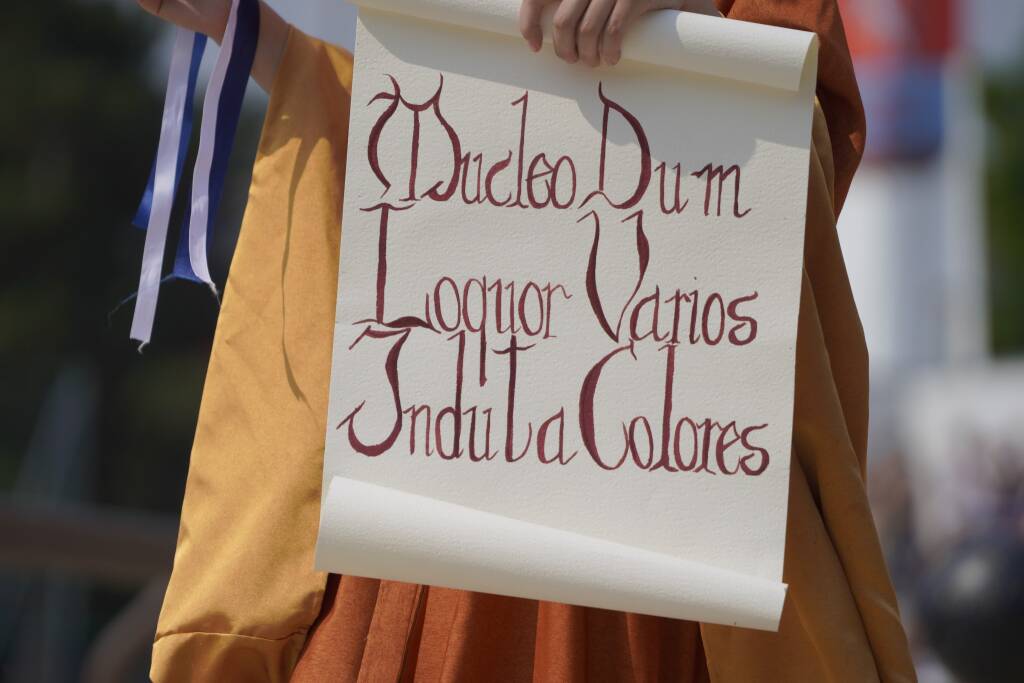 Mucleo Dum
Loquor Varios
Induta Colores